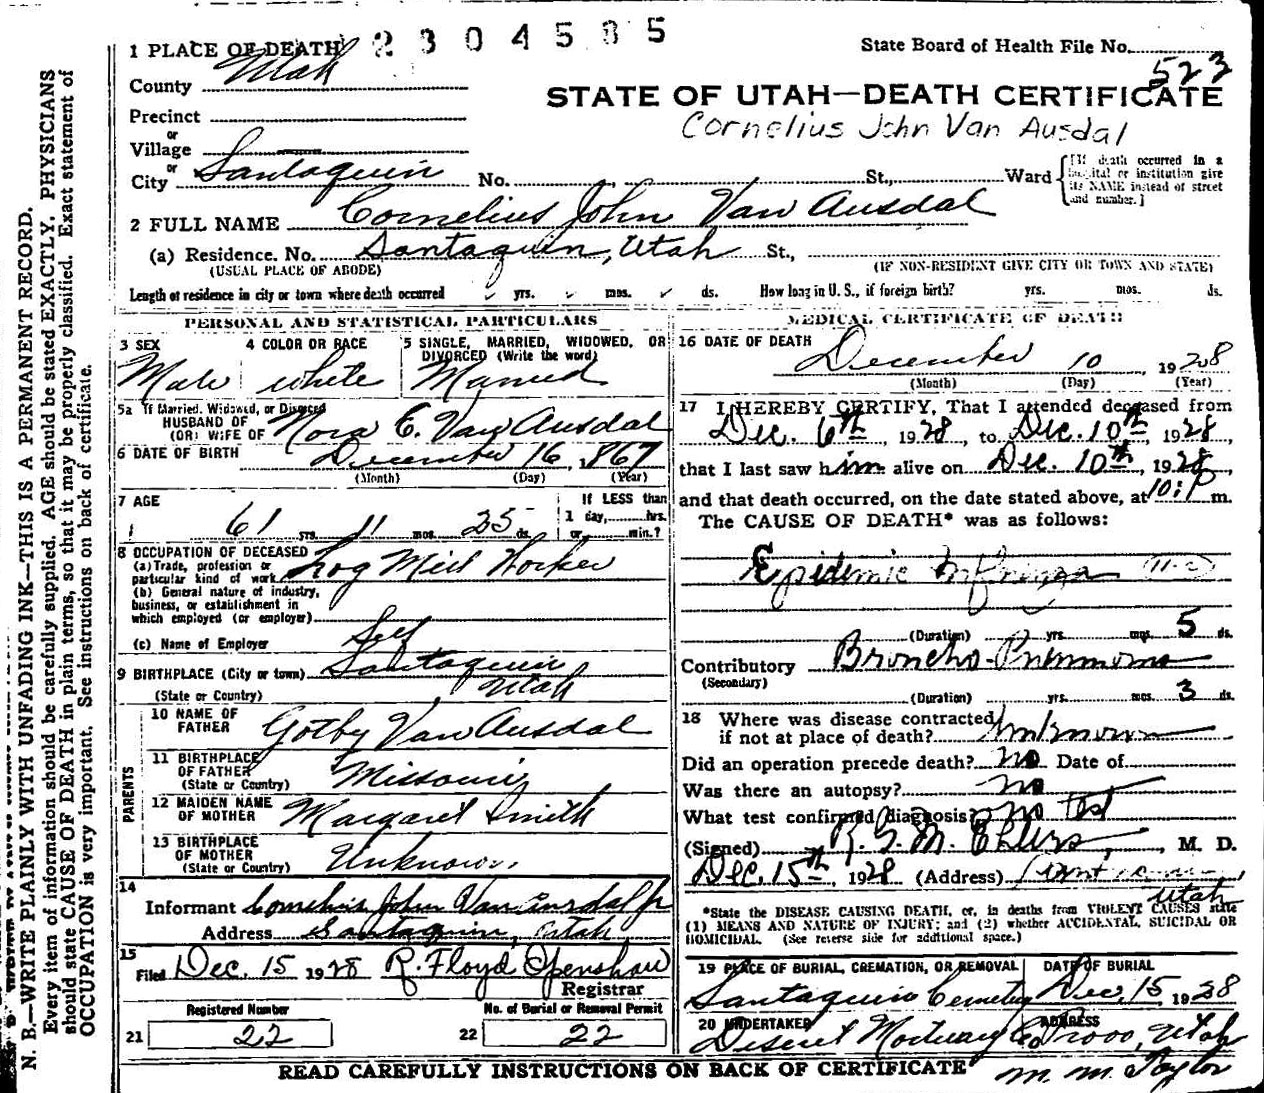 2304585
State Board of Health File No.
523
1 PLACE OF DEATH
County Utah
STATE OF UTAH—DEATH CERTIFICATE
Cornelius John Van Ausdal
Precinct
or
Village
or
City Santaquin No. St., Ward
[If death occurred in a hospital or institution give its NAME instead of street and number.]
2 FULL NAME Cornelius John Van Ausdal
(a) Residence. No. Santaquin, Utah St.,
(USUAL PLACE OF ABODE) (IF NON-RESIDENT GIVE CITY OR TOWN AND STATE)
Length of residence in city or town where death occurred yrs. mos. ds. How long in U. S., if foreign birth? yrs. mos. ds.
PERSONAL AND STATISTICAL PARTICULARS
3 SEX 4 COLOR OR RACE 5 SINGLE, MARRIED, WIDOWED, OR
DIVORCED (Write the word)
Male white Married
5a If Married, Widowed, or Divorced
HUSBAND OF
(OR) WIFE OF Nora C. Van Ausdal
6 DATE OF BIRTH December 16, 1867
(Month) (Day) (Year)
7 AGE If LESS than
61 yrs. 11 mos. 25 ds. 1 day,......hrs.
or......min.?
8 OCCUPATION OF DECEASED
(a) Trade, profession or
particular kind of work Log Mill Worker
(b) General nature of industry,
business, or establishment in
which employed (or employer)
(c) Name of Employer Self
9 BIRTHPLACE (City or town) Santaquin
(State or Country) Utah
PARENTS
10 NAME OF
FATHER Gotby Van Ausdal
11 BIRTHPLACE
OF FATHER Missouri
(State or Country)
12 MAIDEN NAME
OF MOTHER Margaret Smith
13 BIRTHPLACE
OF MOTHER Unknown
(State or Country)
14
Informant Cornelius John Van Ausdal Jr
Address Santaquin, Utah
15
Filed Dec. 15 1928 R. Floyd Openshaw
Registrar
Registered Number No. of Burial or Removal Permit
21 22 22 22
MEDICAL CERTIFICATE OF DEATH
16 DATE OF DEATH
December 10, 1928
(Month) (Day) (Year)
17 I HEREBY CERTIFY, That I attended deceased from
Dec. 6th, 1928, to Dec. 10th, 1928,
that I last saw him alive on Dec. 10th, 1928,
and that death occurred, on the date stated above, at 10:1 P m.
The CAUSE OF DEATH* was as follows:
Epidemic Influenza
(Duration) yrs. mos. 5 ds.
Contributory Broncho-Pneumonia
(Secondary)
(Duration) yrs. mos. 3 ds.
18 Where was disease contracted
if not at place of death? Unknown
Did an operation precede death? no Date of
Was there an autopsy? no
What test confirmed diagnosis? no test
(Signed) R. G. M. Ehlers, M. D.
Dec. 15th, 1928 (Address)
Utah
*State the DISEASE CAUSING DEATH, or, in deaths from VIOLENT CAUSES state
(1) MEANS AND NATURE OF INJURY; and (2) whether ACCIDENTAL, SUICIDAL OR
HOMICIDAL. (See reverse side for additional space.)
19 PLACE OF BURIAL, CREMATION, OR REMOVAL DATE OF BURIAL
Santaquin Cemetery Dec. 15 1928
20 UNDERTAKER ADDRESS
Deseret Mortuary Co Provo, Utah
M. M. Taylor
READ CAREFULLY INSTRUCTIONS ON BACK OF CERTIFICATE
N. B.—WRITE PLAINLY WITH UNFADING INK—THIS IS A PERMANENT RECORD.
Every item of information should be carefully supplied. AGE should be stated EXACTLY. PHYSICIANS
should state CAUSE OF DEATH in plain terms, so that it may be properly classified. Exact statement of
OCCUPATION is very important. See instructions on back of certificate.